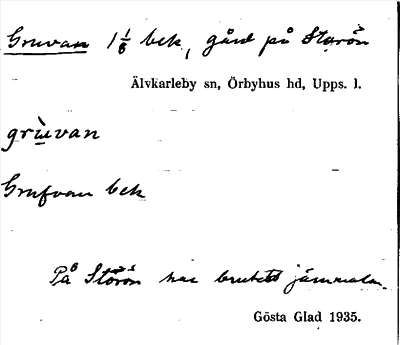 Gruvan 1 1/8 bek, gård på Storön
Älvkarleby sn, Örbyhus hd, Upps. l.
grùvan
Grufvan bek
På Storön har brutits järnmalm.
Gösta Glad 1935.